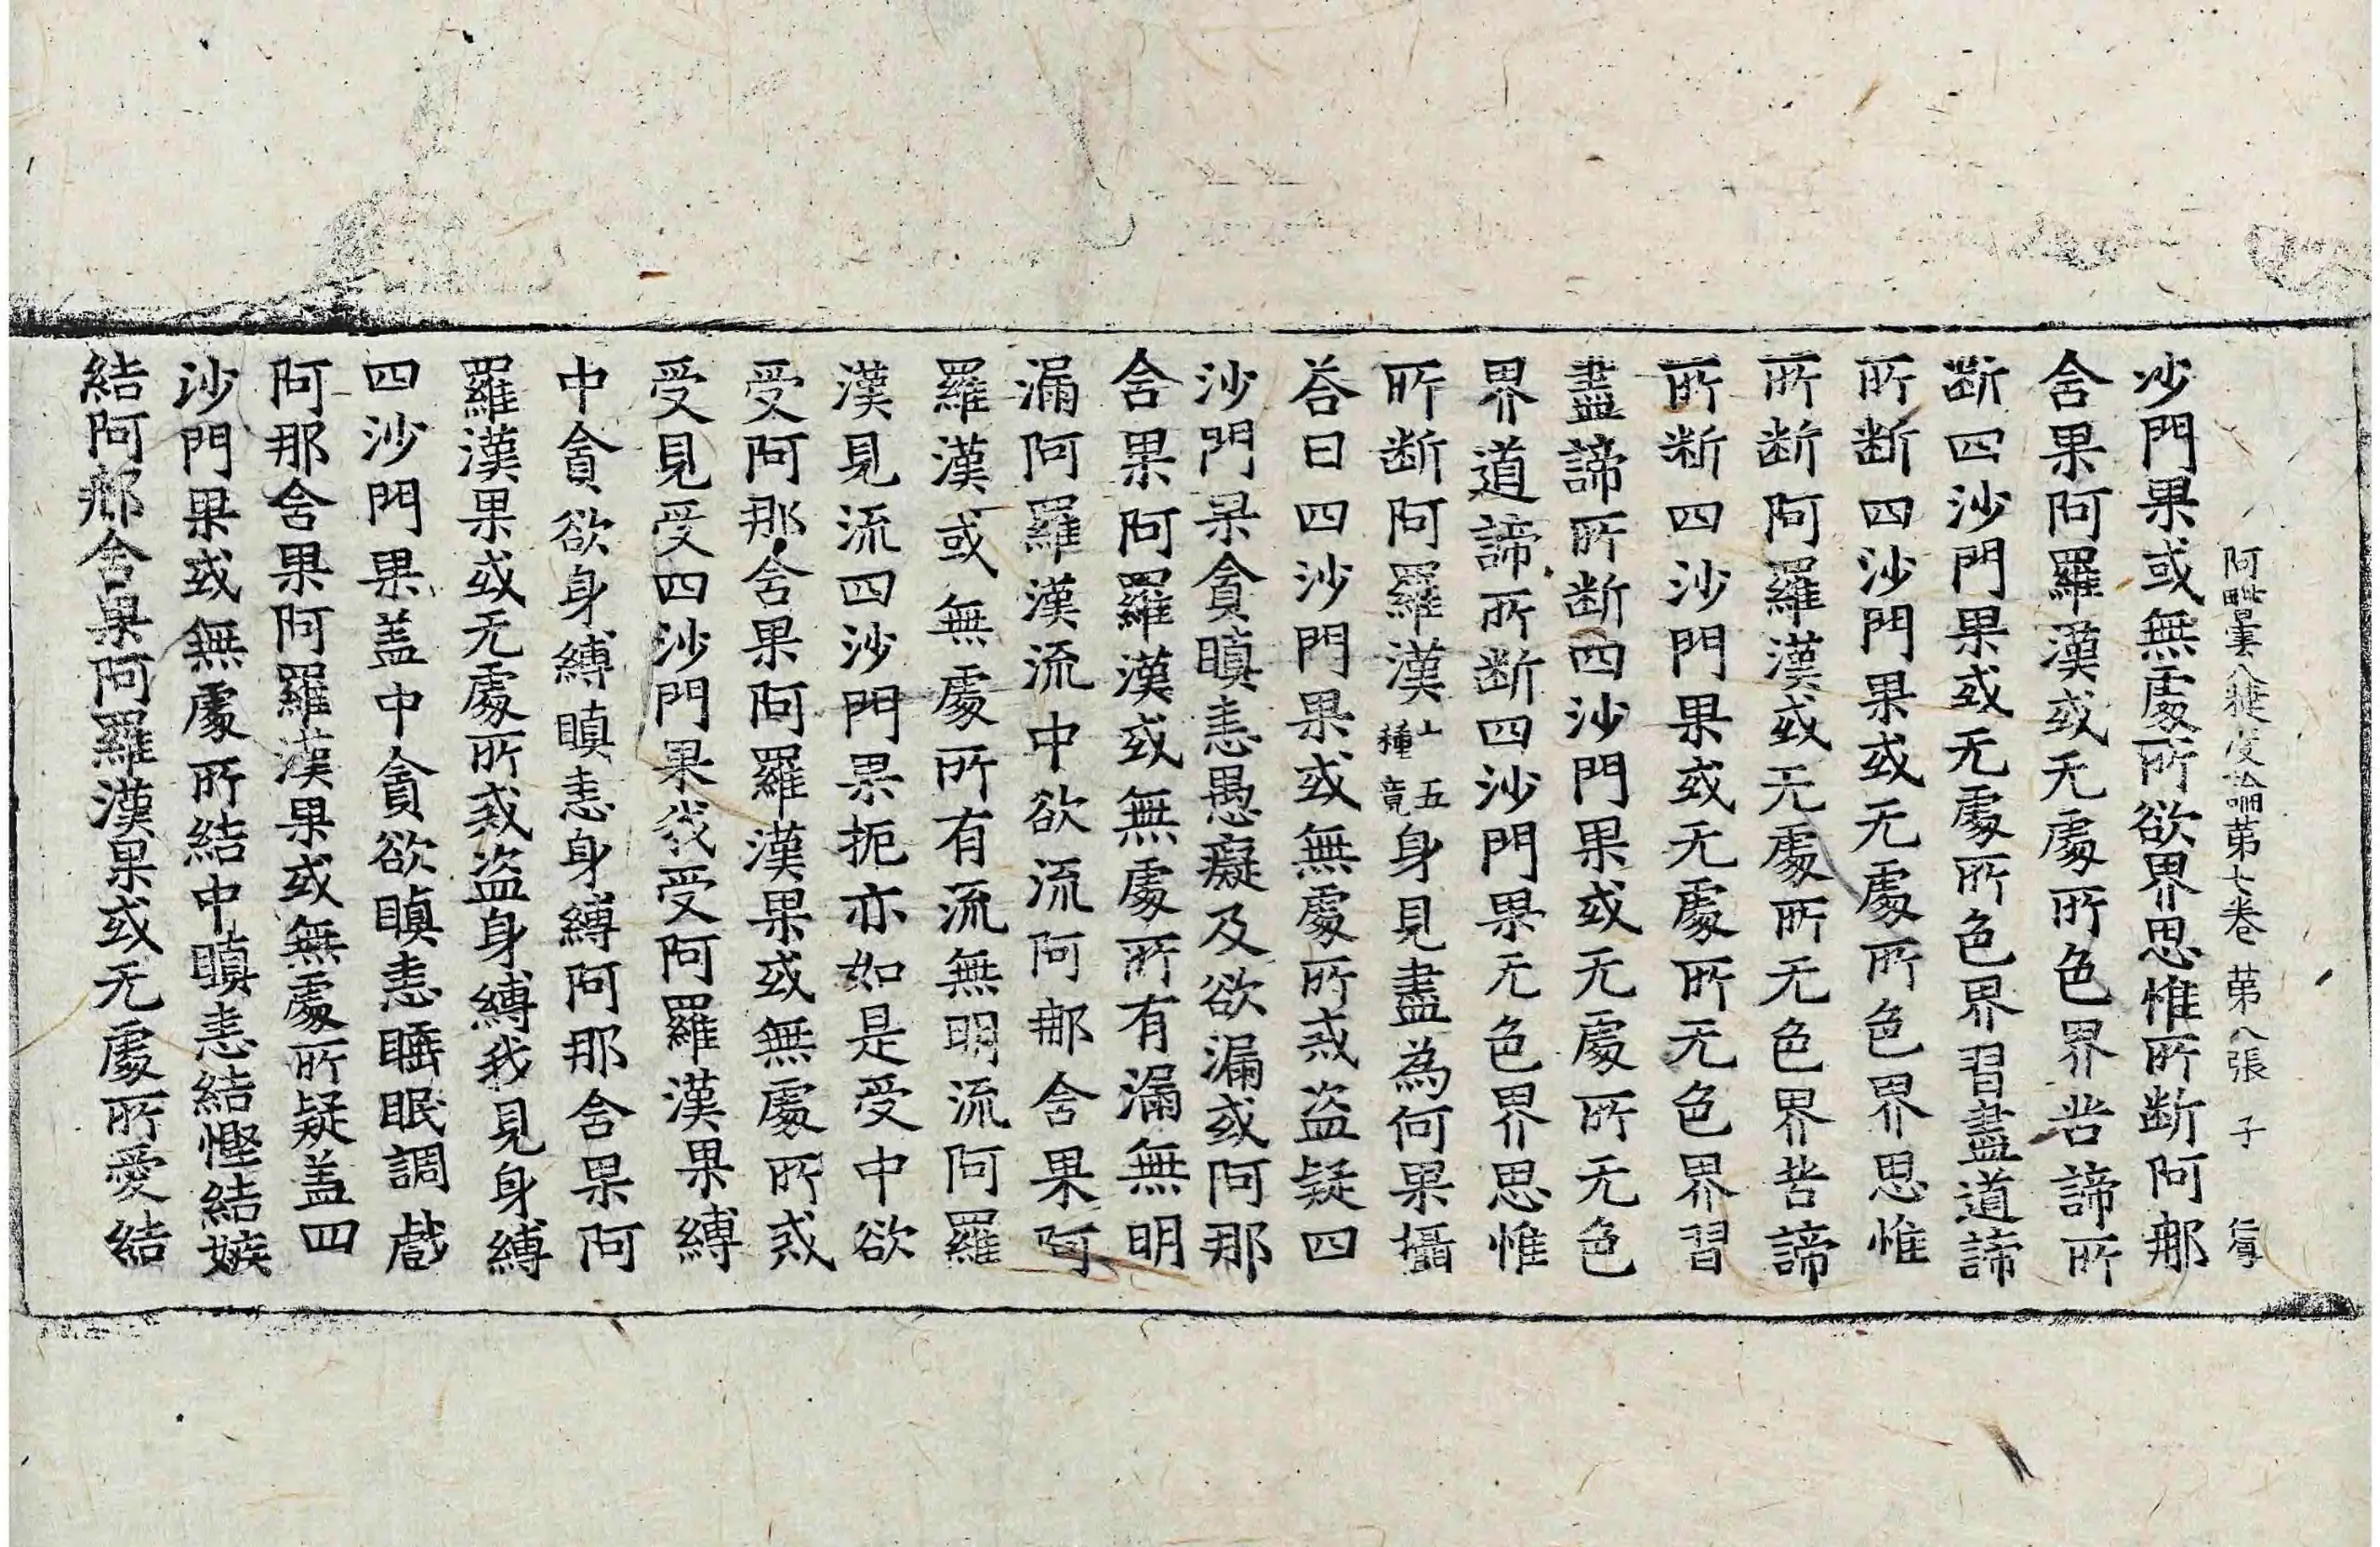 阿毗曇八揵度論第七卷 第八張 子
沙門果或無處所欲界思惟所断阿那
含果阿羅漢或无處所色界苦諦所
断四沙門果或无處所色界習盡道諦
所断四沙門果或无處所色界思惟
所断阿羅漢或无處所无色界苦諦
所断四沙門果或无處所无色界習
盡諦所断四沙門果或无處所无色
界道諦所断四沙門果无色界思惟
所断阿羅漢上五種竟身見盡為何果攝
荅曰四沙門果或無處所戒盗疑四
沙門果貪瞋恚愚癡及欲漏或阿那
含果阿羅漢或無處所有漏無明
漏阿羅漢流中欲流阿那含果阿
羅漢或無處所有流無明流阿羅
漢見流四沙門果扼亦如是受中欲
受阿那含果阿羅漢果或無處所戒
受見受四沙門果我受阿羅漢果縛
中貪欲身縛瞋恚身縛阿那含果阿
羅漢果或无處所戒盗身縛我見身縛
四沙門果盖中貪欲瞋恚睡眠調戲
阿那含果阿羅漢果或無處所疑盖四
沙門果或無處所結中瞋恚結慳結嫉
結阿那含果阿羅漢果或无處所愛結